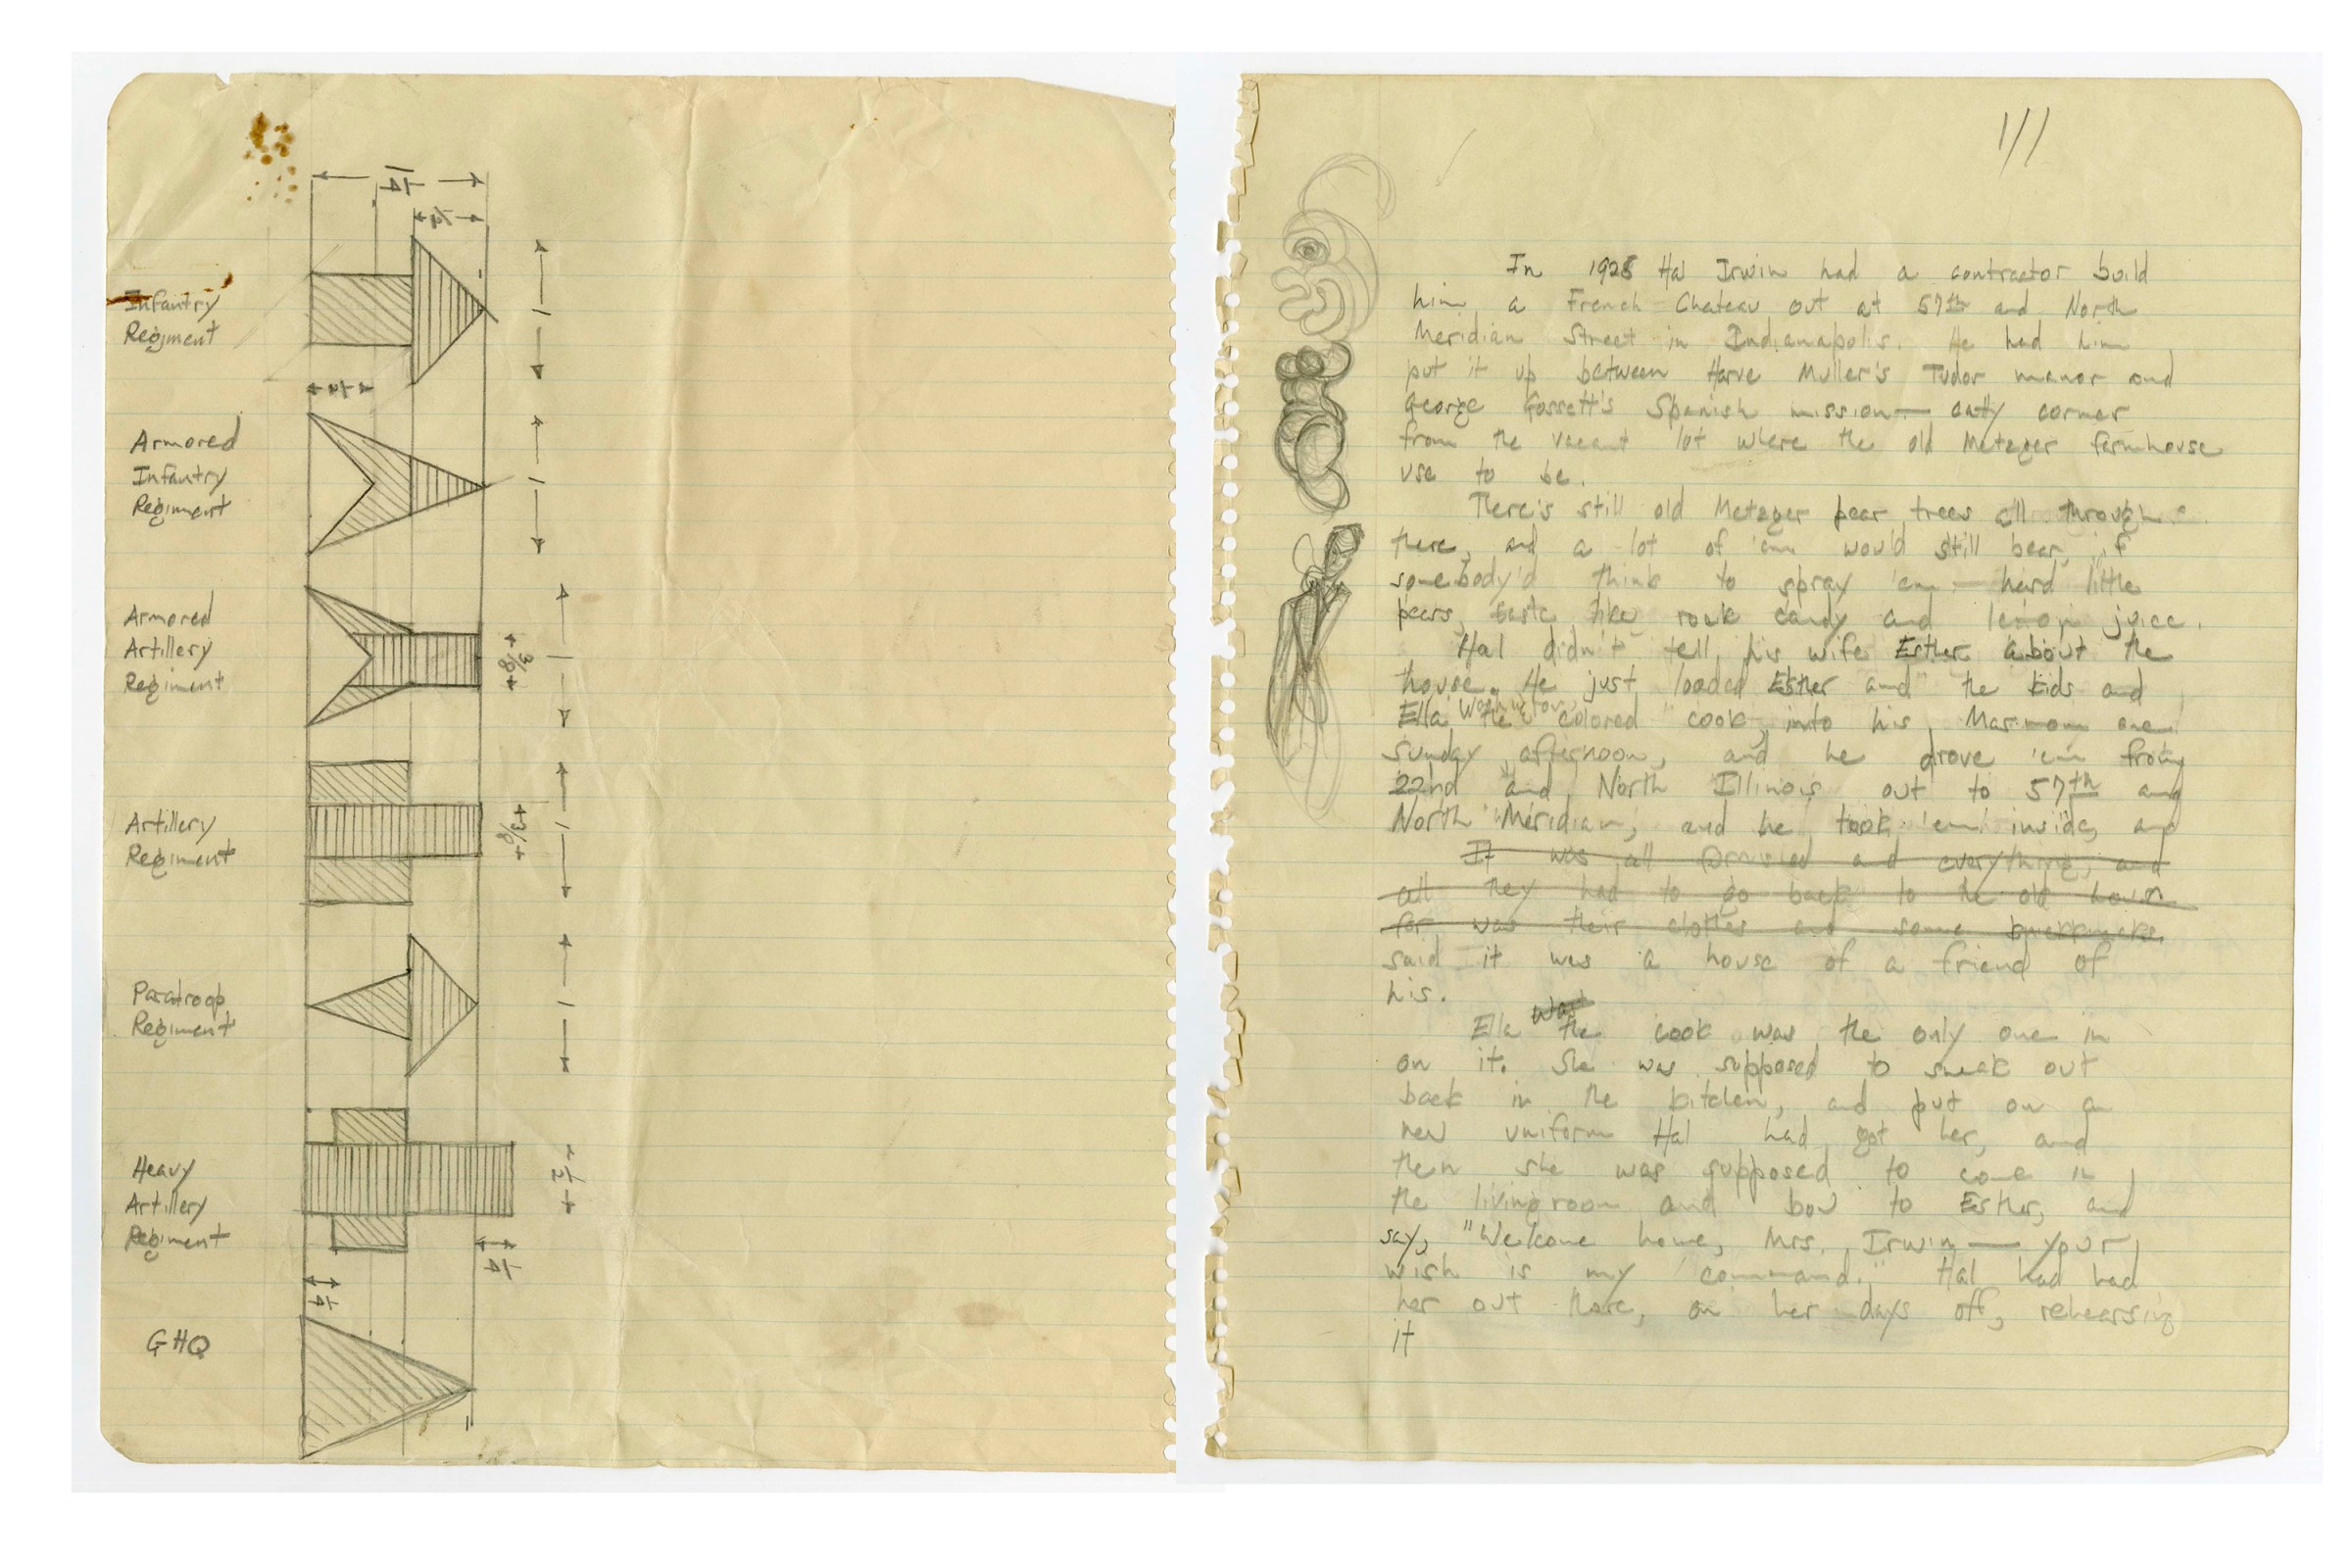 1 1/4
3/4
Infantry
Regiment
1
1/4
Armored
Infantry
Regiment
1
Armored
Artillery
Regiment
1
3/8
Artillery
Regiment
1
3/8
Paratroop
Regiment
1
Heavy
Artillery
Regiment
1/2
1/4
1/4
GHQ
111
In 1928 Hal Irwin had a contractor build
him a French Chateau out at 57th and North
Meridian Street in Indianapolis. He had him
put it up between Harve Muller's Tudor manor and
George Gossett's Spanish mission— catty corner
from the vacant lot where the old Metzger farmhouse
use to be.
There's still old Metzger pear trees all through
there, and a lot of 'em would still bear, if
somebody'd think to spray 'em — hard little
pears, taste like rock candy and lemon juice.
Hal didn't tell his wife Esther about the
house. He just loaded Esther and the kids and
Ella the colored cook, into his Marmon one
Sunday afternoon, and he drove 'em from
22nd and North Illinois out to 57th and
North Meridian, and he took 'em inside, and
It was all and everything, and
all they had to go back to the old house
for was their clothes and some
said it was a house of a friend of
his.
Was
Ella the cook was the only one in
on it. She was supposed to sneak out
back in the kitchen, and put on a
new uniform Hal had got her, and
then she was supposed to come in
the livingroom and bow to Esther, and
say, "Welcome home, Mrs. Irwin — your
wish is my command." Hal had had
her out there, on her days off, rehearsing
it